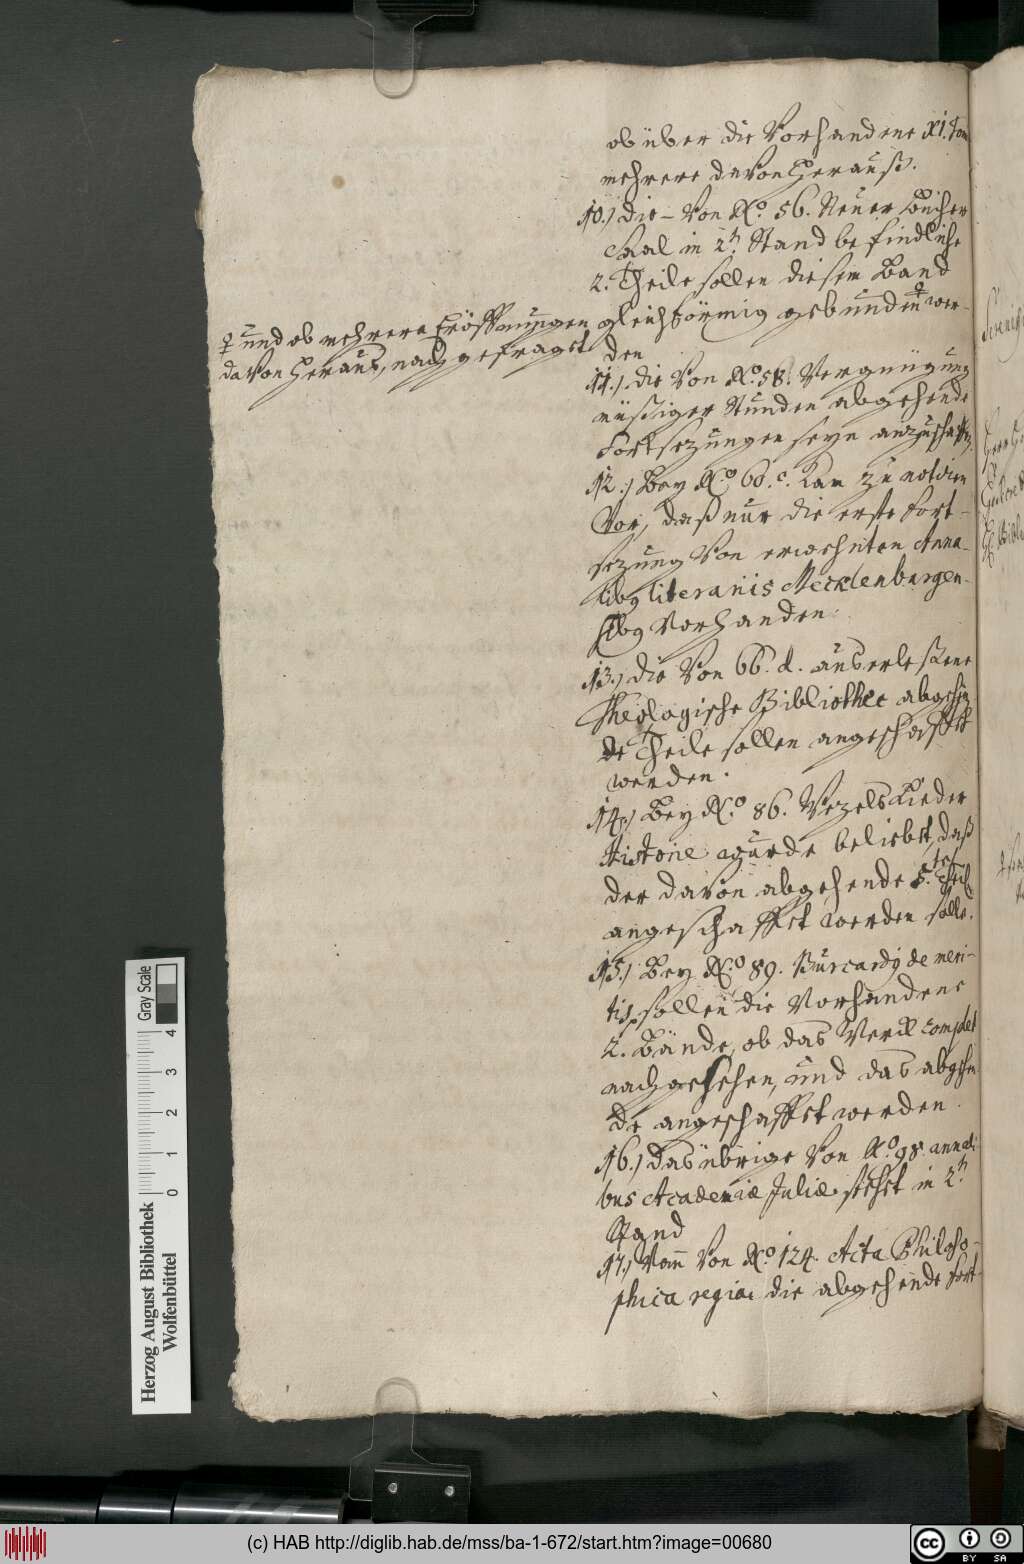 ob über die Vorhandene XI. Tom
mehrere davon herauß.
10.) die – Von No. 56. Neuer Bücher
Saal in 2n. Stand befindliche
2. Theile sollen diesem Band
gleichförmig gebunden wer-
den
♀ und ob mehrere Eröffnungen
davon heraus, nachgefraget
11.) die Von No. 58. Vergnügung
müßiger Stunden abgehende
Fortsezungen seyn anzuschaffen.
12.) Bey No. 60. c. kam zu notiren
Vor, daß nur die erste Fort-
sezung Von erwehnten Anna-
libg literariis Mecklenburgen-
sibg Vorhanden.
13.) die Von 66. d. auserleßene
Theologische Bibliothec abgehen
de Theile sollen angeschafft
werden.
14.) Bey No. 86. Wezels Lieder
Historie wurde beliebet, daß
der davon abgehende 5.ter Theil
angeschaffet werden solle.
15.) Bey No. 89. Burcardg de meri-
tis sollen die Vorhandene
2. Bände, ob das Werck complet
nachgesehen, und das abgehen
de angeschaffet werden.
16.) das übrige Von No. 98. annali
bus Academiæ Juliæ stehet in 2n.
Stand
17.) Wañ Von No. 124. Acta Philoso-
phica regiæ die abgehende Fort-
4
3
2
1
0
Gray Scale
Herzog August Bibliothek
Wolfenbüttel
(c) HAB http://diglib.hab.de/mss/ba-1-672/start.htm?image=00680
cc
BY SA